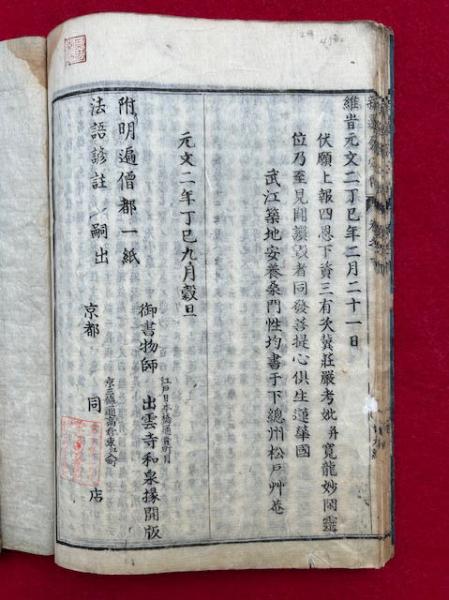 維旹元文二丁巳年二月二十一日
伏願上報四恩下資三有次冀莊嚴考妣并寬龍妙閲靈
位乃至見聞讚毀者同發菩提心俱生蓮華國
武江築地安養桑門性均書于下總州松戸艸菴
元文二年丁巳九月穀旦
江戸日本橋通
御書物師 出雲寺和泉掾開版
附明遍僧都一紙
法語諺註 嗣出
京都 同 店